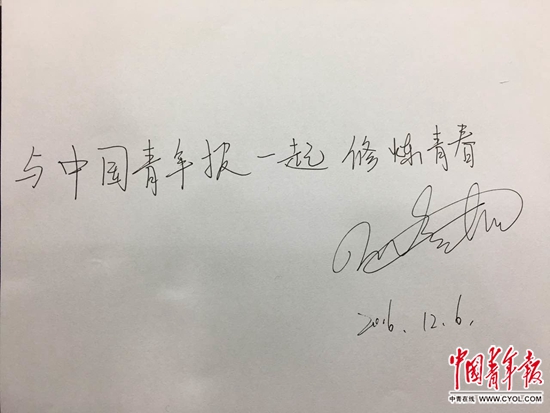 与中国青年报一起 修炼青春
2016.12.6.
中国青年报
中青在线 WWW.CYOL.COM